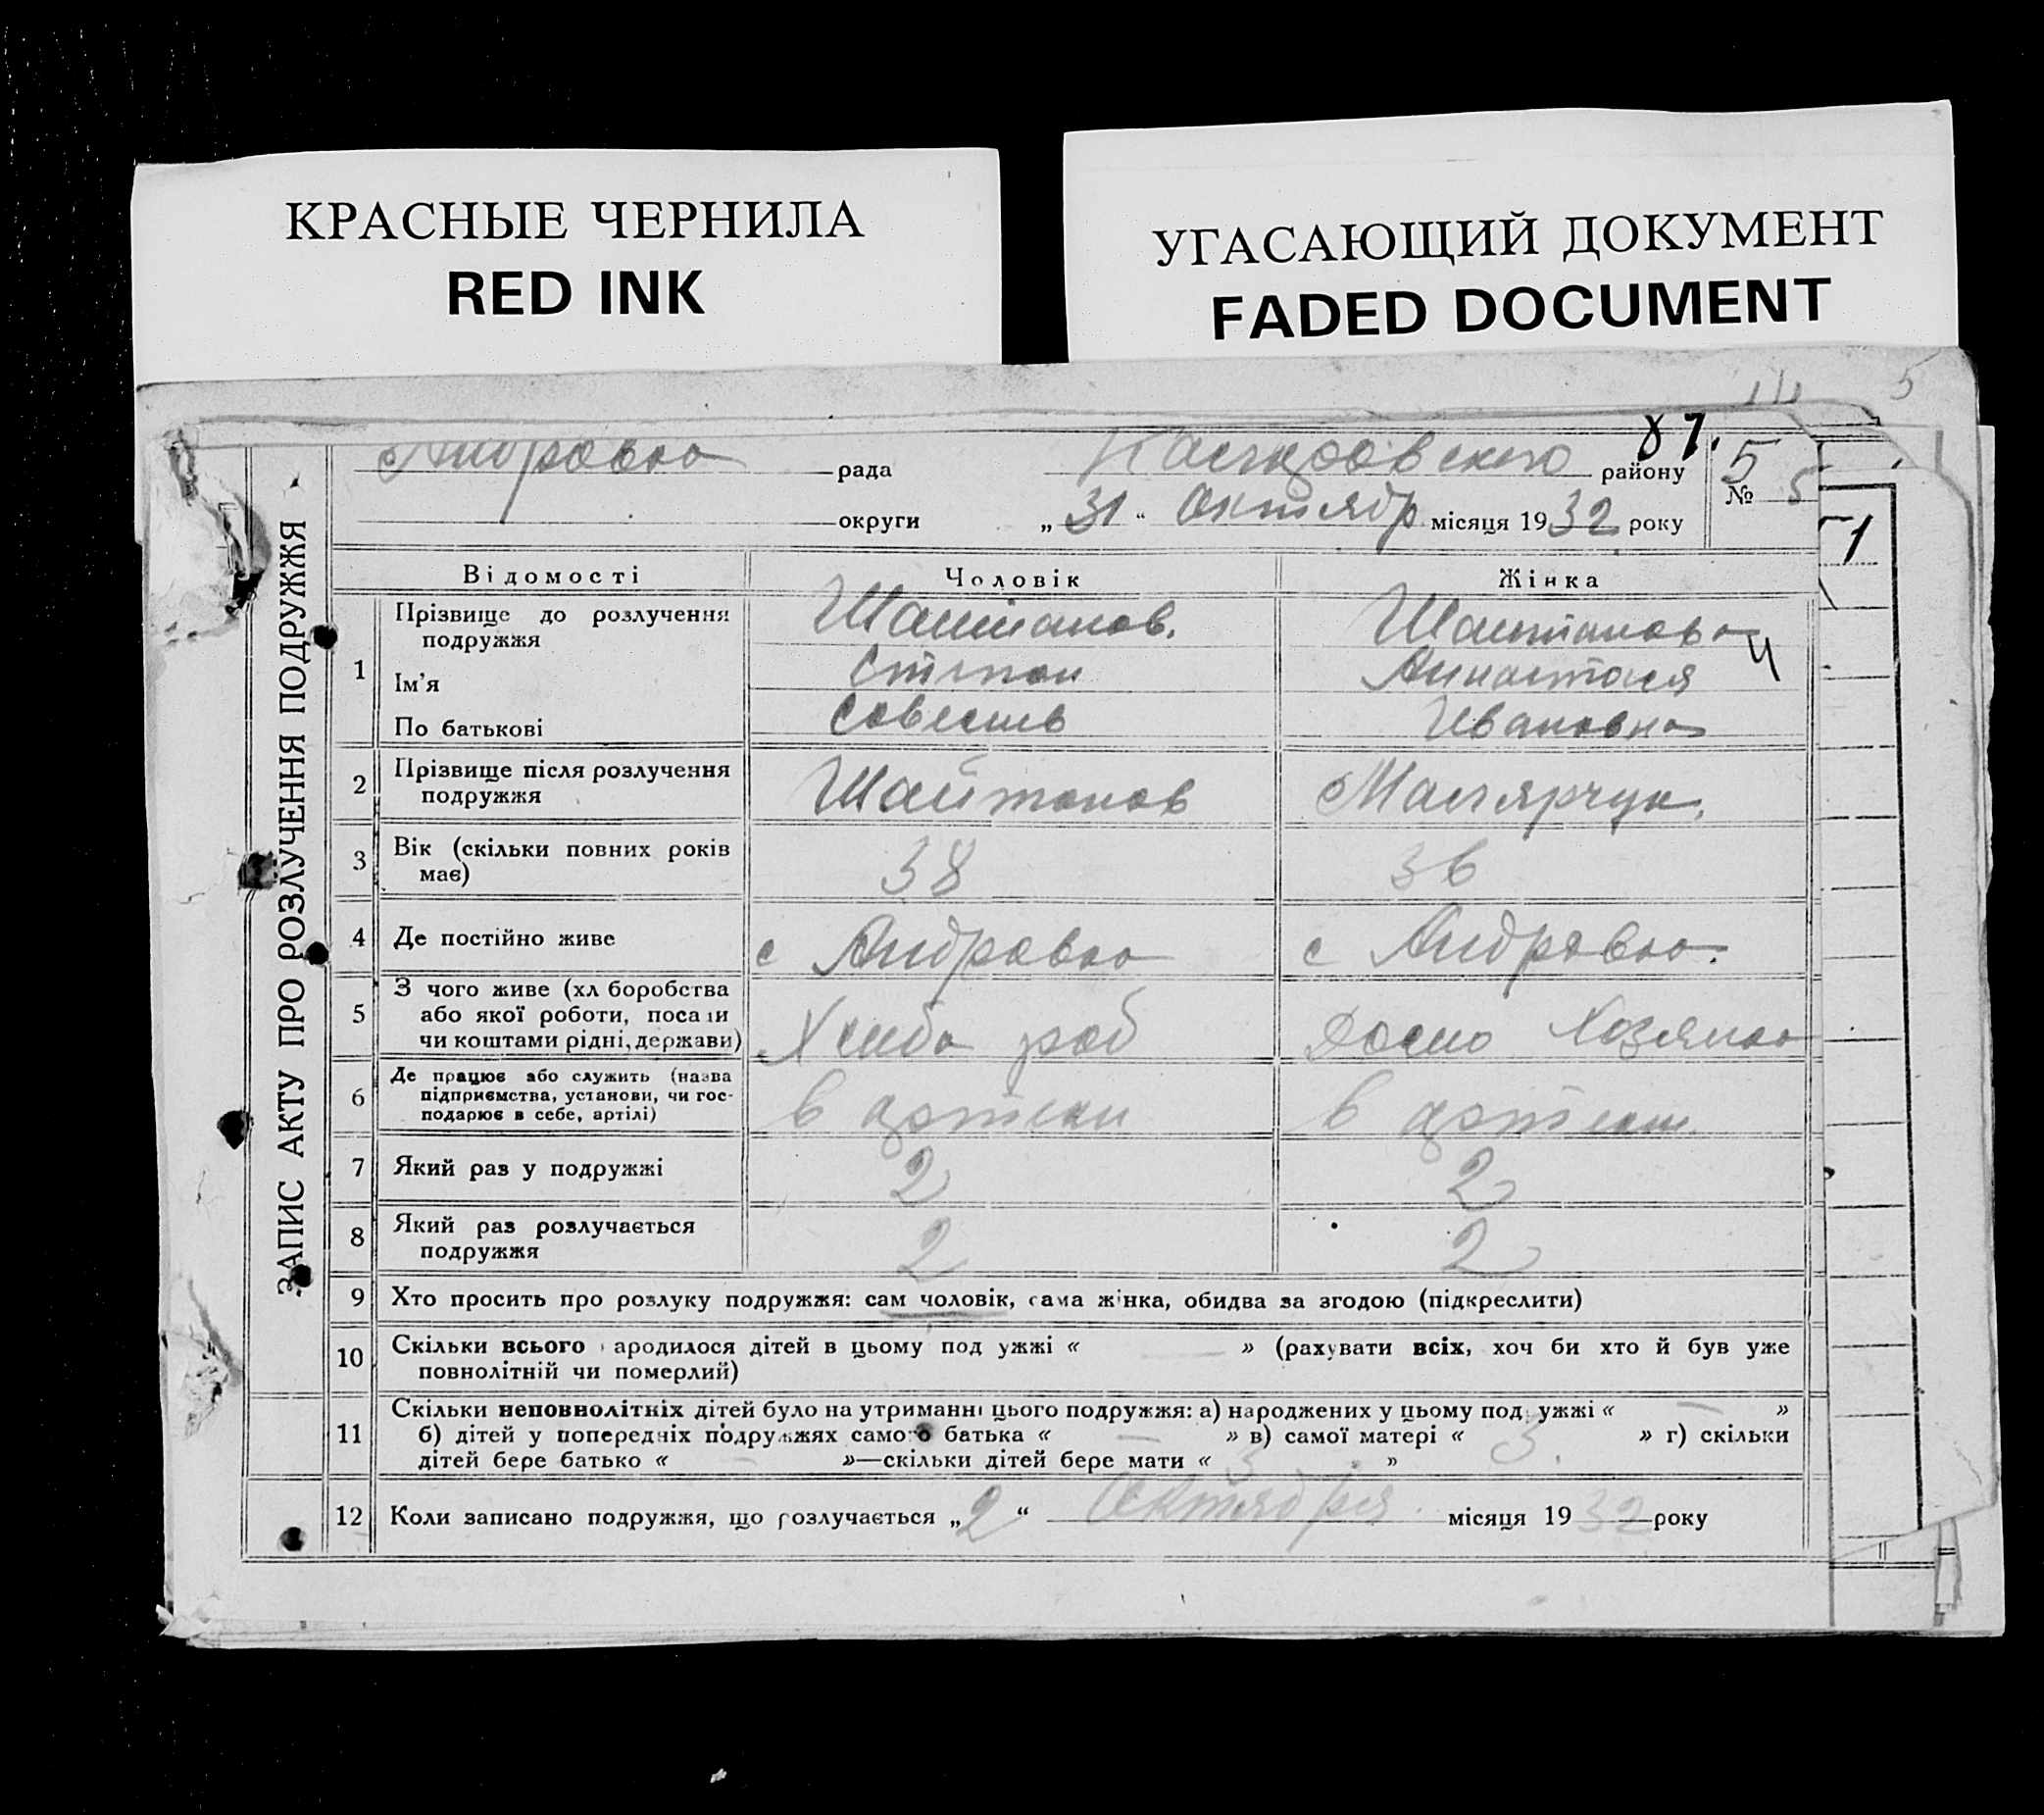 КРАСНЫЕ ЧЕРНИЛА
RED INK
УГАСАЮЩИЙ ДОКУМЕНТ
FADED DOCUMENT
5
87.
Андровка рада району
5
№ 5
округи „31“ Октябр місяця 1932 року
1
ЗАПИС АКТУ ПРО РОЗЛУЧЕННЯ ПОДРУЖЖЯ
Відомості Чоловік Жінка
1 Прізвище до розлучення подружжя Шаитанов. Шаитанова
Ім'я Степан Анастасия
По батькові Савелив Ивановна
2 Прізвище після розлучення подружжя Шайтанов
3 Вік (скільки повних років має) 38 36
4 Де постійно живе с Андровка с Андровка.
5 З чого живе (хліборобства або якої роботи, посади чи коштами рідні, держави) Хлибо роб Домо Хозяика
6 Де працює або служить (назва підприємства, установи, чи господарює в себе, артілі) в артели в артели
7 Який раз у подружжі 2 2
8 Який раз розлучається подружжя 2 2
9 Хто просить про розлуку подружжя: сам чоловік, сама жінка, обидва за згодою (підкреслити)
10 Скільки всього народилося дітей в цьому подружжі « — » (рахувати всіх, хоч би хто й був уже
повнолітній чи померлий)
11 Скільки неповнолітніх дітей було на утриманні цього подружжя: а) народжених у цьому подружжі « — »
б) дітей у попередніх подружжях самого батька « — » в) самої матері « 3. » г) скільки
дітей бере батько « — »—скільки дітей бере мати « 3 »
12 Коли записано подружжя, що розлучається „2“ Октября місяця 1932 року